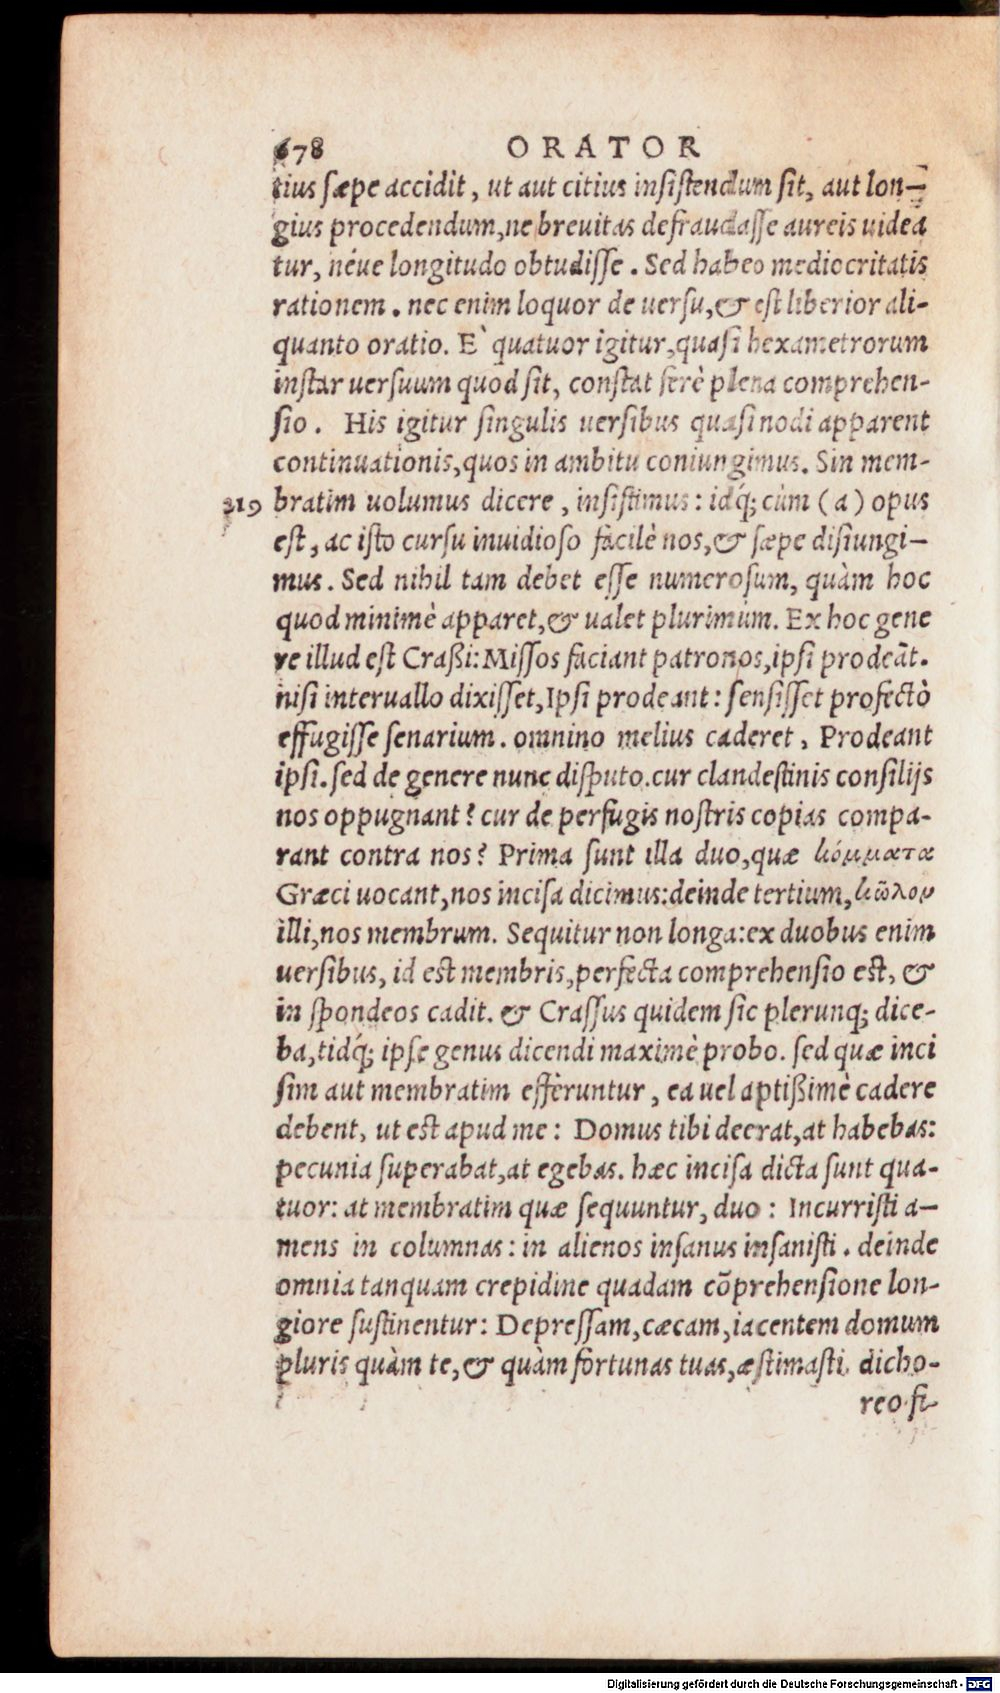 678 ORATOR
tius sæpe accidit, ut aut citius insistendum sit, aut lon-
gius procedendum,ne breuitas defraudasse aureis uidea
tur, néue longitudo obtudisse. Sed habeo mediocritatis
rationem. nec enim loquor de uersu,& est liberior ali-
quanto oratio. È quatuor igitur,quasi hexametrorum
instar uersuum quod sit, constat ferè plena comprehen-
sio. His igitur singulis uersibus quasi nodi apparent
continuationis,quos in ambitu coniungimus. Sin mem-
219 bratim uolumus dicere, insistimus: idq́; cùm (a) opus
est, ac isto cursu inuidioso facilè nos,& sæpe disiungi-
mus. Sed nihil tam debet esse numerosum, quàm hoc
quod minimè apparet,& ualet plurimùm. Ex hoc gene
re illud est Craßi:Missos faciant patronos,ipsi prodeāt.
nisi interuallo dixisset,Ipsi prodeant: sensisset profectò
effugisse senarium. omnino melius caderet, Prodeant
ipsi. sed de genere nunc disputo.cur clandestinis consilijs
nos oppugnant? cur de perfugis nostris copias compa-
rant contra nos? Prima sunt illa duo,quæ κόμματα
Græci uocant,nos incisa dicimus:deinde tertium,κῶλον
illi,nos membrum. Sequitur non longa:ex duobus enim
uersibus, id est membris,perfecta comprehensio est, &
in spondeos cadit. & Crassus quidem sic plerunq; dice-
ba,tidq́; ipse genus dicendi maximè probo. sed quæ inci
sim aut membratim efferuntur, ea uel aptißimè cadere
debent, ut est apud me: Domus tibi deerat,at habebas:
pecunia superabat,at egebas. hæc incisa dicta sunt qua-
tuor: at membratim quæ sequuntur, duo: Incurristi a-
mens in columnas: in alienos insanus insanisti. deinde
omnia tanquam crepidine quadam cõprehensione lon-
giore sustinentur: Depressam,cæcam,iacentem domum
pluris quàm te,& quàm fortunas tuas,æstimasti. dicho-
reo fi-
Digitalisierung gefördert durch die Deutsche Forschungsgemeinschaft - DFG